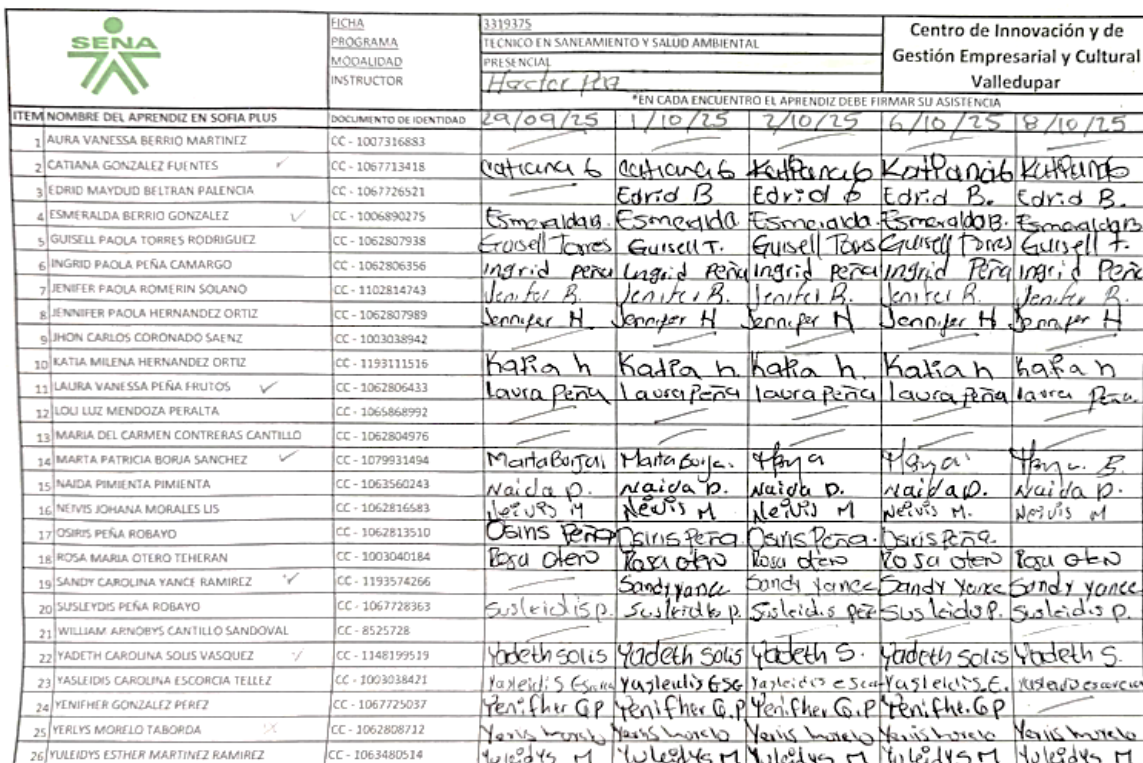 SENA
FICHA 3319375
PROGRAMA TECNICO EN SANEAMIENTO Y SALUD AMBIENTAL
MODALIDAD PRESENCIAL
INSTRUCTOR Hector
Centro de Innovación y de
Gestión Empresarial y Cultural
Valledupar
*EN CADA ENCUENTRO EL APRENDIZ DEBE FIRMAR SU ASISTENCIA
ITEM NOMBRE DEL APRENDIZ EN SOFIA PLUS DOCUMENTO DE IDENTIDAD 29/09/25 1/10/25 2/10/25 6/10/25 8/10/25
1 AURA VANESSA BERRIO MARTINEZ CC - 1007316883
2 CATIANA GONZALEZ FUENTES CC - 1067713418 Catiana G Catiana G
3 EDRID MAYDUD BELTRAN PALENCIA CC - 1067726521 Edrid B Edrid B Edrid B. Edrid B.
4 ESMERALDA BERRIO GONZALEZ CC - 1006890275 Esmeralda B. Esmeralda Esmeralda. Esmeralda B. Esmeralda B
5 GUISELL PAOLA TORRES RODRIGUEZ CC - 1062807938 Guisell Torres Guisell T. Guisell Torres Guisell Torres Guisell T.
6 INGRID PAOLA PEÑA CAMARGO CC - 1062806356 Ingrid Peña Ingrid Peña Ingrid Peña Ingrid Peña Ingrid Peña
7 JENIFER PAOLA ROMERIN SOLANO CC - 1102814743 Jenifer R. Jenifer R. Jenifer R. Jenifer R. Jenifer R.
8 JENNIFER PAOLA HERNANDEZ ORTIZ CC - 1062807989 Jennifer H Jennifer H Jennifer H Jennifer H Jennifer H
9 JHON CARLOS CORONADO SAENZ CC - 1003038942
10 KATIA MILENA HERNANDEZ ORTIZ CC - 1193111516 Katia h Katia h Katia h. Katia h Katia h
11 LAURA VANESSA PEÑA FRUTOS CC - 1062806433 Laura Peña Laura Peña Laura Peña Laura Peña Laura Peña
12 LOLI LUZ MENDOZA PERALTA CC - 1065868992
13 MARIA DEL CARMEN CONTRERAS CANTILLO CC - 1062804976
14 MARTA PATRICIA BORJA SANCHEZ CC - 1079931494 Marta Borja Marta Borja
15 NAIDA PIMIENTA PIMIENTA CC - 1063560243 Naida P. Naida P. Naida P. Naida P. Naida P.
16 NEIVIS JOHANA MORALES LIS CC - 1062816583 Neivis M Neivis M Neivis M Neivis M. Neivis M
17 OSIRIS PEÑA ROBAYO CC - 1062813510 Osiris Peña Osiris Peña. Osiris Peña. Osiris Peña.
18 ROSA MARIA OTERO TEHERAN CC - 1003040184 Rosa Otero Rosa otero Rosa otero Rosa otero Rosa otero
19 SANDY CAROLINA YANCE RAMIREZ CC - 1193574266 Sandy yance Sandy Yance Sandy Yance Sandy yance
20 SUSLEYDIS PEÑA ROBAYO CC - 1067728363 Susleidis p. Susleidis p. Susleidis Pe Susleidis P. Susleidis p.
21 WILLIAM ARNOBYS CANTILLO SANDOVAL CC - 8525728
22 YADETH CAROLINA SOLIS VASQUEZ CC - 1148199519 Yadeth solis Yadeth Solis Yadeth S. Yadeth Solis Yadeth S.
23 YASLEIDIS CAROLINA ESCORCIA TELLEZ CC - 1003038421 Yasleidis Yasleidis Yasleidis Yasleidis E. Yasleidis escorcia
24 YENIFHER GONZALEZ PEREZ CC - 1067725037 Yenifher G.P Yenifher G.P Yenifher G.P Yenifher GP
25 YERLYS MORELO TABORDA CC - 1062808712 Yerlis morelo Yerlis morelo Yerlis morelo Yerlis morelo Yerlis morelo
26 YULEIDYS ESTHER MARTINEZ RAMIREZ CC - 1063480514 Yuleidys M Yuleidys M Yuleidys M Yuleidys M Yuleidys M